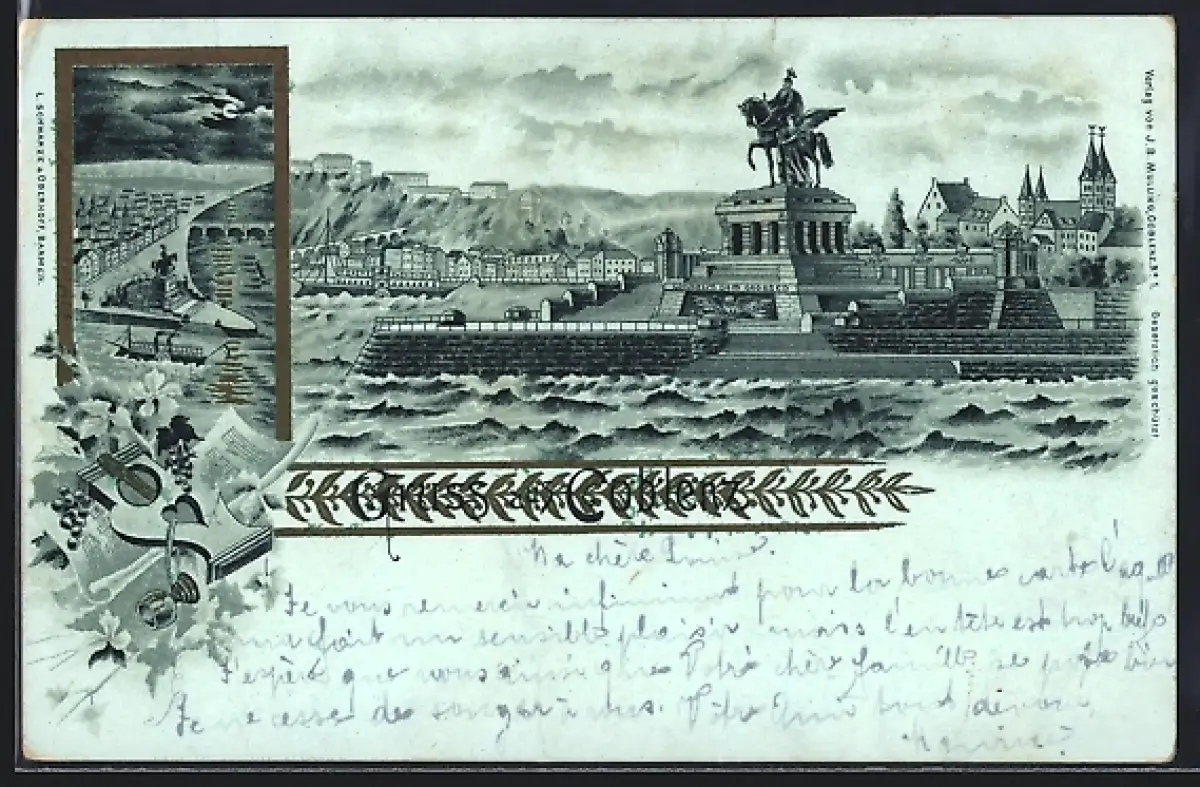 L. SCHWARZE & OBERHOFF, BARMEN.
Verlag von J. B. Mehling, Coblenz. № 1. Gesetzlich geschützt
Gruss aus Coblenz.
Ma chère
Je vous remercie infiniment pour la bonne carte
fait un sensible plaisir, mais l'entête est trop
J'espère que vous ainsi que Votre chère famille se porte bien
Je ne cesse de songer à vous. Votre Ami